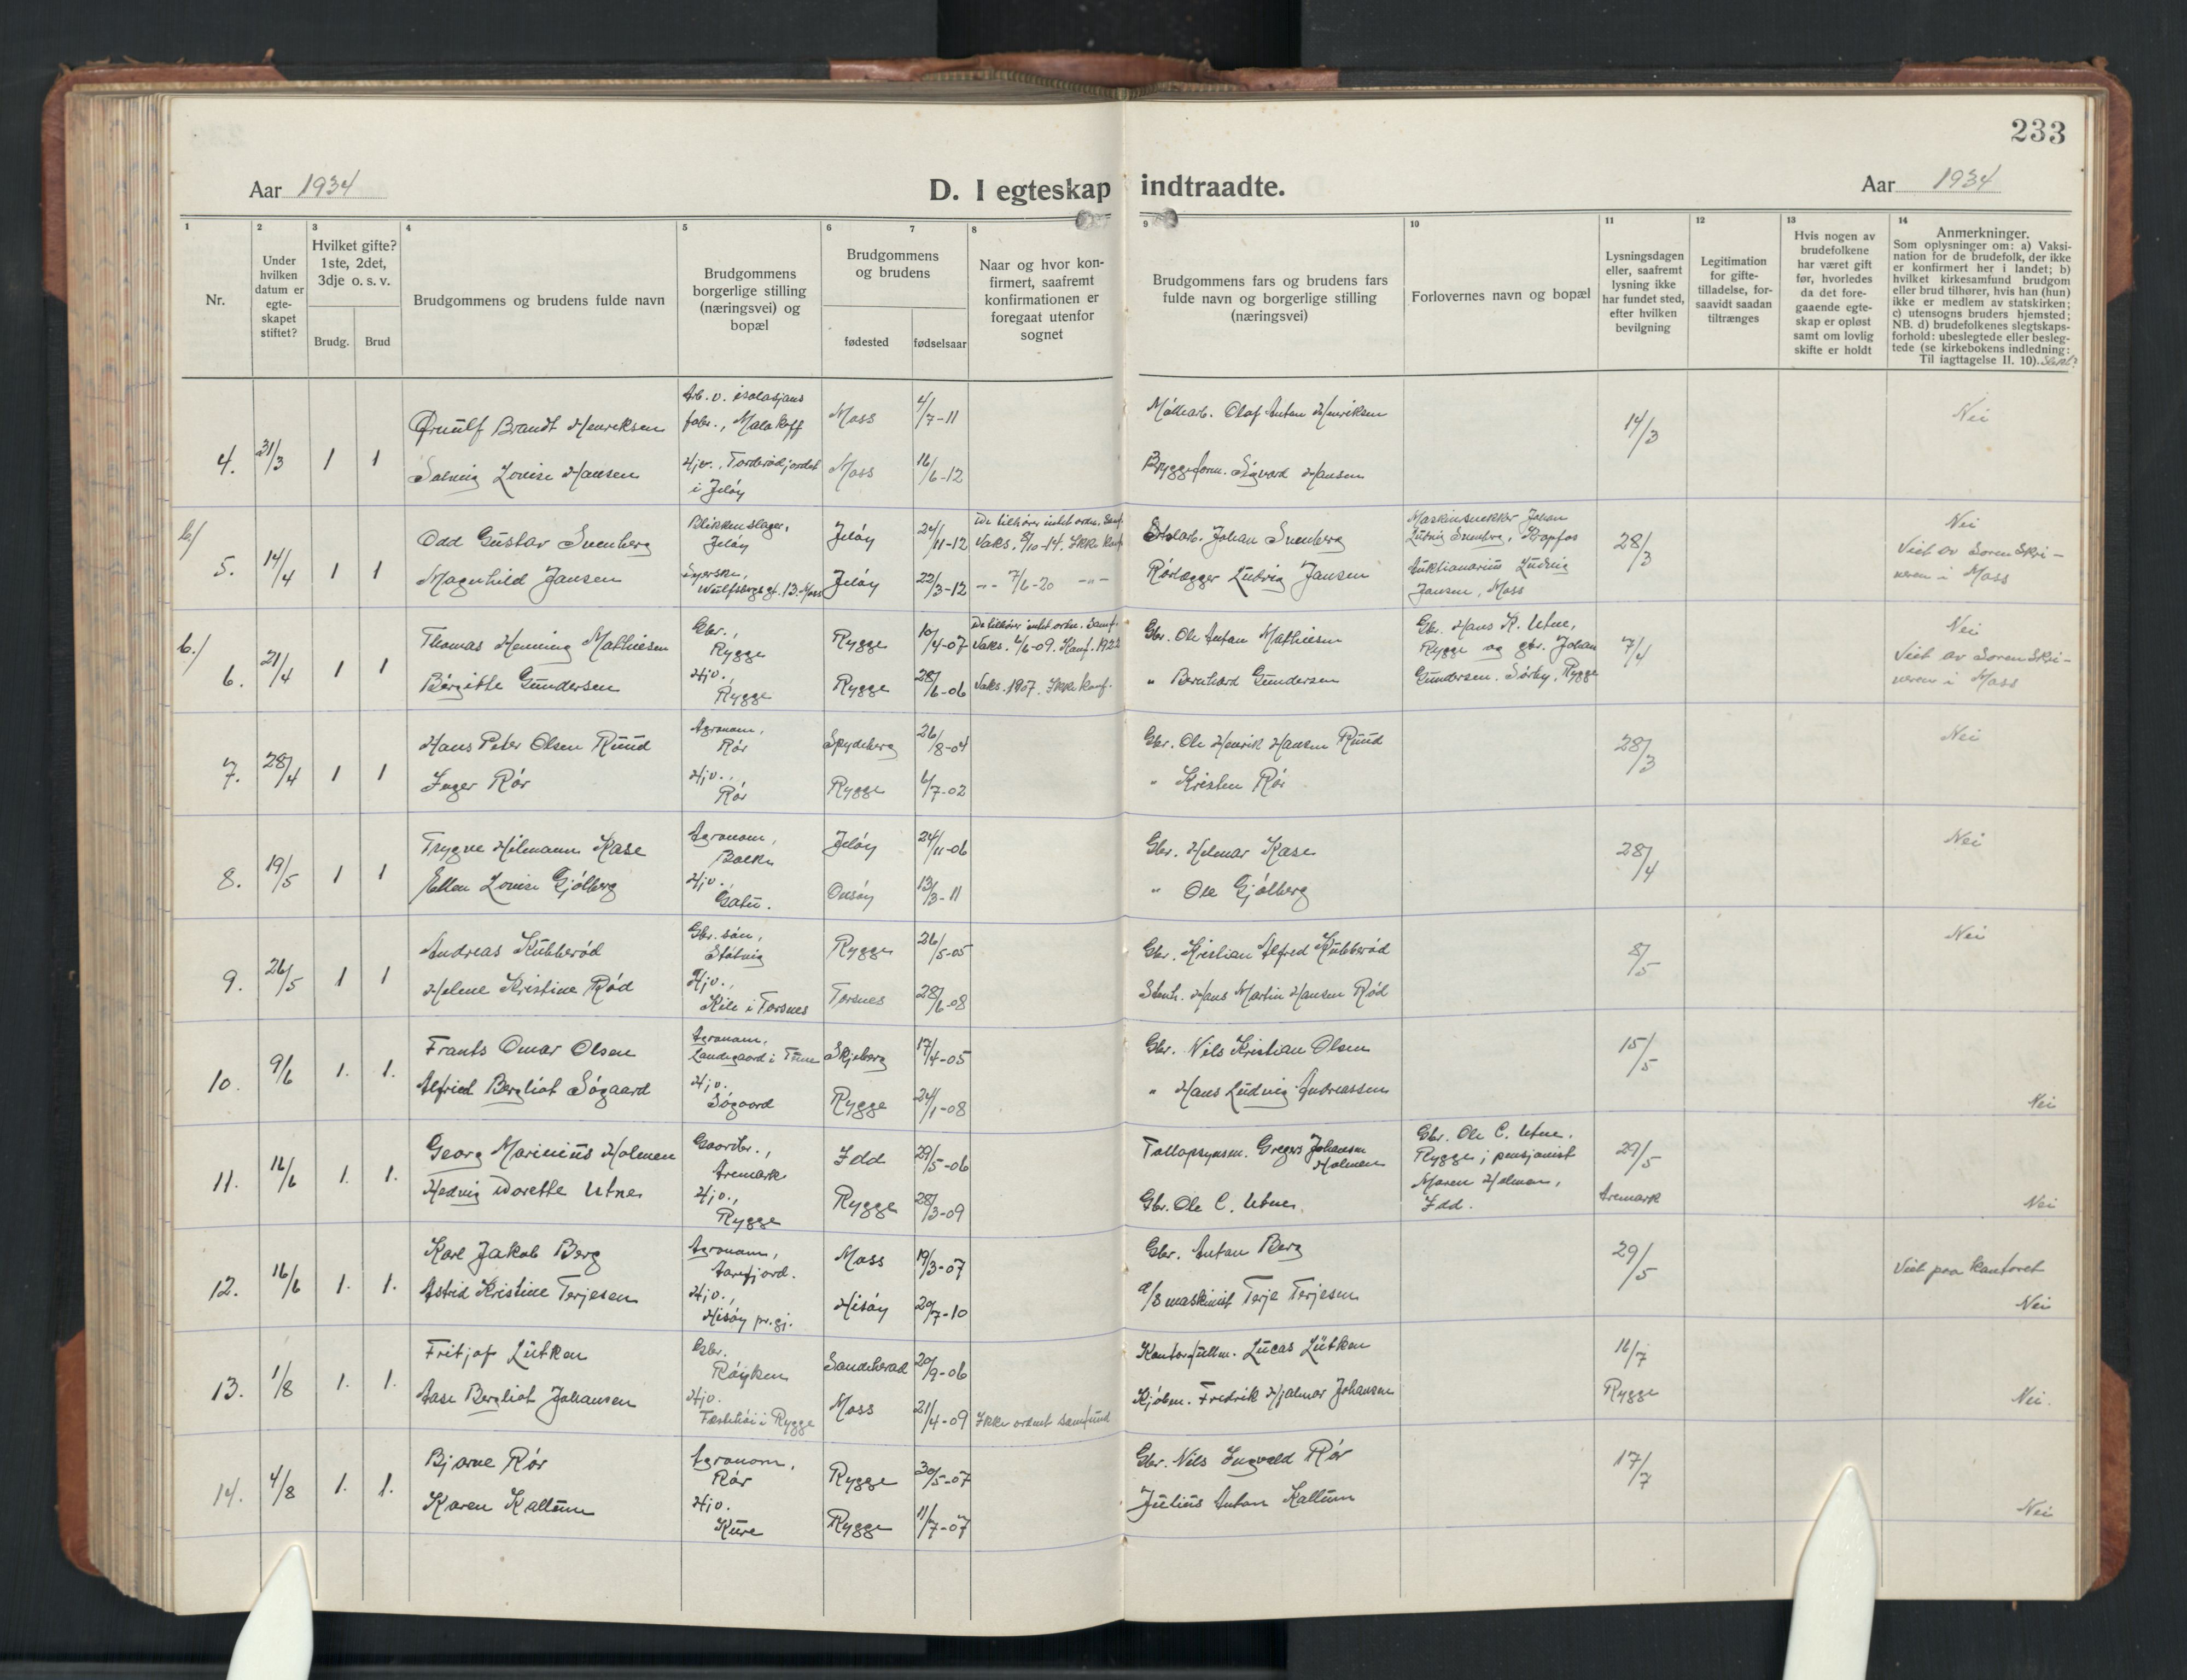 233
Aar 1934
D. I egteskap indtraadte.
Aar 1934
1
Nr.
2
Under hvilken datum er egte-skapet stiftet?
3
Hvilket gifte? 1ste, 2det, 3dje o. s. v.
Brudg.
Brud
4
Brudgommens og brudens fulde navn
5
Brudgommens borgerlige stilling (næringsvei) og bopæl
6
7
Brudgommens og brudens
fødested
fødselsaar
8
Naar og hvor kon-firmert, saafremt konfirmationen er foregaat utenfor sognet
9
Brudgommens fars og brudens fars fulde navn og borgerlige stilling (næringsvei)
10
Forlovernes navn og bopæl
11
Lysningsdagen eller, saafremt lysning ikke har fundet sted, efter hvilken bevilgning
12
Legitimation for gifte-tilladelse, for-saavidt saadan tiltrænges
13
Hvis nogen av brudefolkene har været gift før, hvorledes da det fore-gaaende egte-skap er opløst samt om lovlig skifte er holdt
14
Anmerkninger.
Som oplysninger om: a) Vaksi-nation for de brudefolk, der ikke er konfirmert her i landet; b) hvilket kirkesamfund brudgom eller brud tilhører, hvis han (hun) ikke er medlem av statskirken; c) utensogns bruders hjemsted; NB. d) brudefolkenes slegtskaps-forhold: ubeslegtede eller besleg-tede (se kirkebokens indledning: Til iagttagelse II. 10). Slekt?
4. 31/3 1 1
Ørnulf Brandt Henriksen
Arb. v. isolasjons fabr., Malakoff
Moss 4/7-11
Møllearb. Olaf Anton Henriksen
14/3
Nei
Solveig Louise Hansen
Hjv., Torderødjordet i Jeløy
Moss 16/6-12
Bryggeform. Sigvard Hansen
b/
5. 14/4 1 1
Odd Gustav Svenberg
Blikkenslager, Jeløy
Jeløy 24/11-12
De tilhører intet ordn. Samf. Vaks. 8/10-14. Ikke konf.
Johan Svenberg
Maskinsnekker Johan Ludvig Svenberg, Kropfos
28/3
Nei
Magnhild Jansen
Syerske, Wulfsbergs gt. 13. Moss
Jeløy 22/3-12
-"- 7/6-20 -"-
Rørlægger Ludvig Jansen
Auktionarius Ludvig Jansen, Moss
Viet av Sorenskri-veren i Moss
b./
6. 21/4 1 1
Thomas Henning Mathiesen
Gbr., Rygge
Rygge 10/4-07
De tilhører intet ordn. Samf. Vaks. 4/6-09. Konf. 1922
Gbr. Ole Anton Mathiesen
Gbr. Hans K. Utne, Rygge og gbr. Johan Gundersen, Sørby, Rygge
7/4
Nei
Birgitte Gundersen
Hjv., Rygge
Rygge 28/6-06
Vaks. 1907. Ikke konf.
" Bernhard Gundersen
Viet av Sorenskri-veren i Moss
7. 28/4 1 1
Hans Peter Olsen Ruud
Agronom, Rør
Spydeberg 26/8-04
Gbr. Ole Henrik Hansen Ruud
28/3
Nei
Inger Rør
Hjv., Rør
Rygge 6/7-02
" Kristen Rør
8. 19/5 1 1
Trygve Hilmann Kase
Agronom,
Jeløy 24/11-06
Gbr. Helmar Kase
28/4
Nei
Ellen Louise Gjølberg
Hjv., Gatu.
Onsøy 13/3-11
" Ole Gjølberg
9. 26/5 1 1
Andreas Kubberød
Gbr. søn, Støtvig
Rygge 26/5-05
Gbr. Kristian Alfred Kubberød
8/5
Nei
Helene Kristine Rød
Hjv., Kile i Torsnes
Torsnes 28/6-08
Stenh. Hans Martin Hansen Rød
10. 9/6 1. 1.
Frants Omar Olsen
Agronom, Landegaard i Tune
Skjeberg 17/4-05
Gbr. Nils Kristian Olsen
15/5
Alfrid Bergliot Søgaard
Hjv. Søgaard
Rygge 24/1-08
" Hans Ludvig Andreassen
Nei
11. 16/6 1. 1.
Georg Marinius Holmen
Gaardbr., Aremark
Idd 29/5-06
Tollopsynsm. Gregers Johansen Holmen
Gbr. Ole C. Utne, Rygge; pensjonist Maren Holmen, Idd.
29/5
Aremark
Hedvig Dorette Utne
Hjv., Rygge
Rygge 28/3-09
Gbr. Ole C. Utne
Nei
12. 16/6 1. 1.
Karl Jakob Berg
Agronom, Aarefjord.
Moss 19/3-07
Gbr. Anton Berg
29/5
Viet paa kontoret
Astrid Kristine Terjesen
Hjv., Hisøy pr. gj.
Hisøy 20/7-10
maskinist Terje Terjesen
Nei
13. 1/8 1. 1.
Fritjof Lütken
Gbr. Røyken
Sandeherad 20/9-06
Kontorfullm. Lucas Lütken
16/7
Rygge
Aase Bergliot Johansen
Hjv. i Rygge
Moss 21/4-09
Ikke ordnet samfund
Kjøbm. Fredrik Hjalmar Johansen
Nei.
14. 4/8 1. 1.
Bjarne Rør
Agronom, Rør
Rygge 30/5-07
Gbr. Nils Ingvald Rør
17/7
Karen Kallum
Hjv. Kure
Rygge 11/7-07
Julius Anton Kallum
Nei